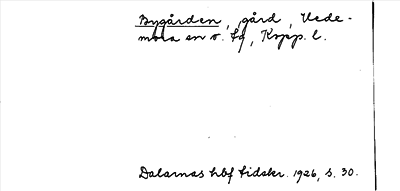 Bygården, gård, Vede-
mora sn o. fg, Kopp. l.
Dalarnas hbf tidskr. 1926, s. 30.